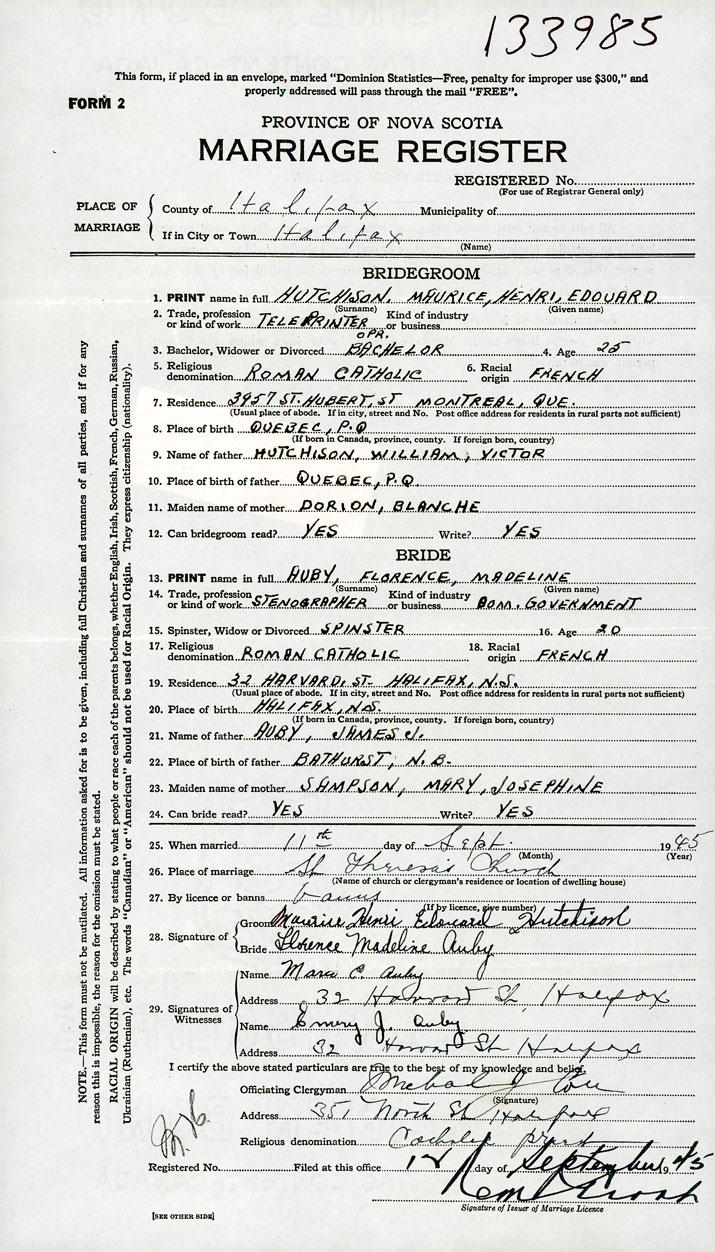 133985
This form, if placed in an envelope, marked "Dominion Statistics—Free, penalty for improper use $300," and
properly addressed will pass through the mail "FREE".
FORM 2
PROVINCE OF NOVA SCOTIA
MARRIAGE REGISTER
REGISTERED No.
(For use of Registrar General only)
PLACE OF MARRIAGE
County of Halifax Municipality of
If in City or Town Halifax
(Name)
BRIDEGROOM
1. PRINT name in full HUTCHISON, MAURICE, HENRI, EDOUARD
(Surname) (Given name)
2. Trade, profession or kind of work TELEPRINTER OPR. Kind of industry or business
3. Bachelor, Widower or Divorced BACHELOR 4. Age 25
5. Religious denomination ROMAN CATHOLIC 6. Racial origin FRENCH
7. Residence 3957 ST. HUBERT, ST MONTREAL, QUE.
(Usual place of abode. If in city, street and No. Post office address for residents in rural parts not sufficient)
8. Place of birth QUEBEC, P.Q
(If born in Canada, province, county. If foreign born, country)
9. Name of father HUTCHISON, WILLIAM, VICTOR
10. Place of birth of father QUEBEC, P.Q.
11. Maiden name of mother DORION, BLANCHE
12. Can bridegroom read? YES Write? YES
BRIDE
13. PRINT name in full AUBY, FLORENCE, MADELINE
(Surname) (Given name)
14. Trade, profession or kind of work STENOGRAPHER Kind of industry or business DOM. GOVERNMENT
15. Spinster, Widow or Divorced SPINSTER 16. Age 20
17. Religious denomination ROMAN CATHOLIC 18. Racial origin FRENCH
19. Residence 32 HARVARD. ST. HALIFAX, N.S.
(Usual place of abode. If in city, street and No. Post office address for residents in rural parts not sufficient)
20. Place of birth HALIFAX, N.S.
(If born in Canada, province, county. If foreign born, country)
21. Name of father AUBY, JAMES J.
22. Place of birth of father BATHURST, N.B.
23. Maiden name of mother SAMPSON, MARY, JOSEPHINE
24. Can bride read? YES Write? YES
25. When married 11th day of Sept. 1945
(Month) (Year)
26. Place of marriage St Theresa's Church
(Name of church or clergyman's residence or location of dwelling house)
27. By licence or banns banns
(If by licence, give number)
28. Signature of
Groom Maurice Henri Edouard Hutchison
Bride Florence Madeline Auby
29. Signatures of Witnesses
Name Auby
Address 32 Harvard St, Halifax
Name Emery J. Auby
Address 32 Harvard St Halifax
I certify the above stated particulars are true to the best of my knowledge and belief.
Officiating Clergyman Michael J
(Signature)
Address 351 North St Halifax
Religious denomination Catholic priest
Registered No. Filed at this office 12 day of September 1945
Signature of Issuer of Marriage Licence
[SEE OTHER SIDE]
NOTE.—This form must not be mutilated. All information asked for is to be given, including full Christian and surnames of all parties, and if for any
reason this is impossible, the reason for the omission must be stated.
RACIAL ORIGIN will be described by stating to what people or race each of the parents belongs, whether English, Irish, Scottish, French, German, Russian,
Ukrainian (Ruthenian), etc. The words "Canadian" or "American" should not be used for Racial Origin. They express citizenship (nationality).